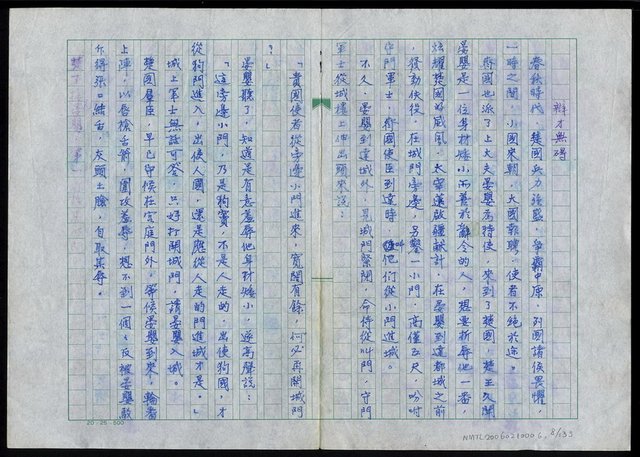 辯才無礙
春秋時代，楚國兵力強盛，爭霸中原，列國諸侯畏懼，
一時之間，小國來朝，大國報聘，使者不絕於途。
齊國也派了上大夫晏嬰為特使，來到了楚國，楚王久聞
晏嬰是一位身材矮小而善於辭令的人，想要折辱他一番，
炫耀楚國的威風。太宰薳啟疆獻計，在晏嬰到達都城之前
，發動伕役，在城門旁邊，另鑿一小門，高僅五尺，吩咐
守門軍士，齊國使臣到達時，叫他們從小門進城。
不久，晏嬰到達城外，見城門緊閉，命侍從叫門，守門
軍士從城樓上伸出頭來說：
「貴國使者從旁邊小門進來，寬闊有餘，何必再開城門
？」
晏嬰聽了，知道是有意羞辱他身材矮小，遂高聲說：
「這旁邊小門，乃是狗竇，不是人走的，出使狗國，才
從狗門進入，出使人國，還是應從人走的門進城不是。」
城上軍士無話可答，只好打開城門，請晏嬰入城。
楚國羣臣，早已守候在宮庭門外，等候晏嬰到來，輪番
上陣，以唇槍舌箭，圍攻羞辱，想不到一個個反被晏嬰駁
斥得張口結舌，灰頭土臉，自取其辱。
20×25=500
NMTL20060210006, 8/133